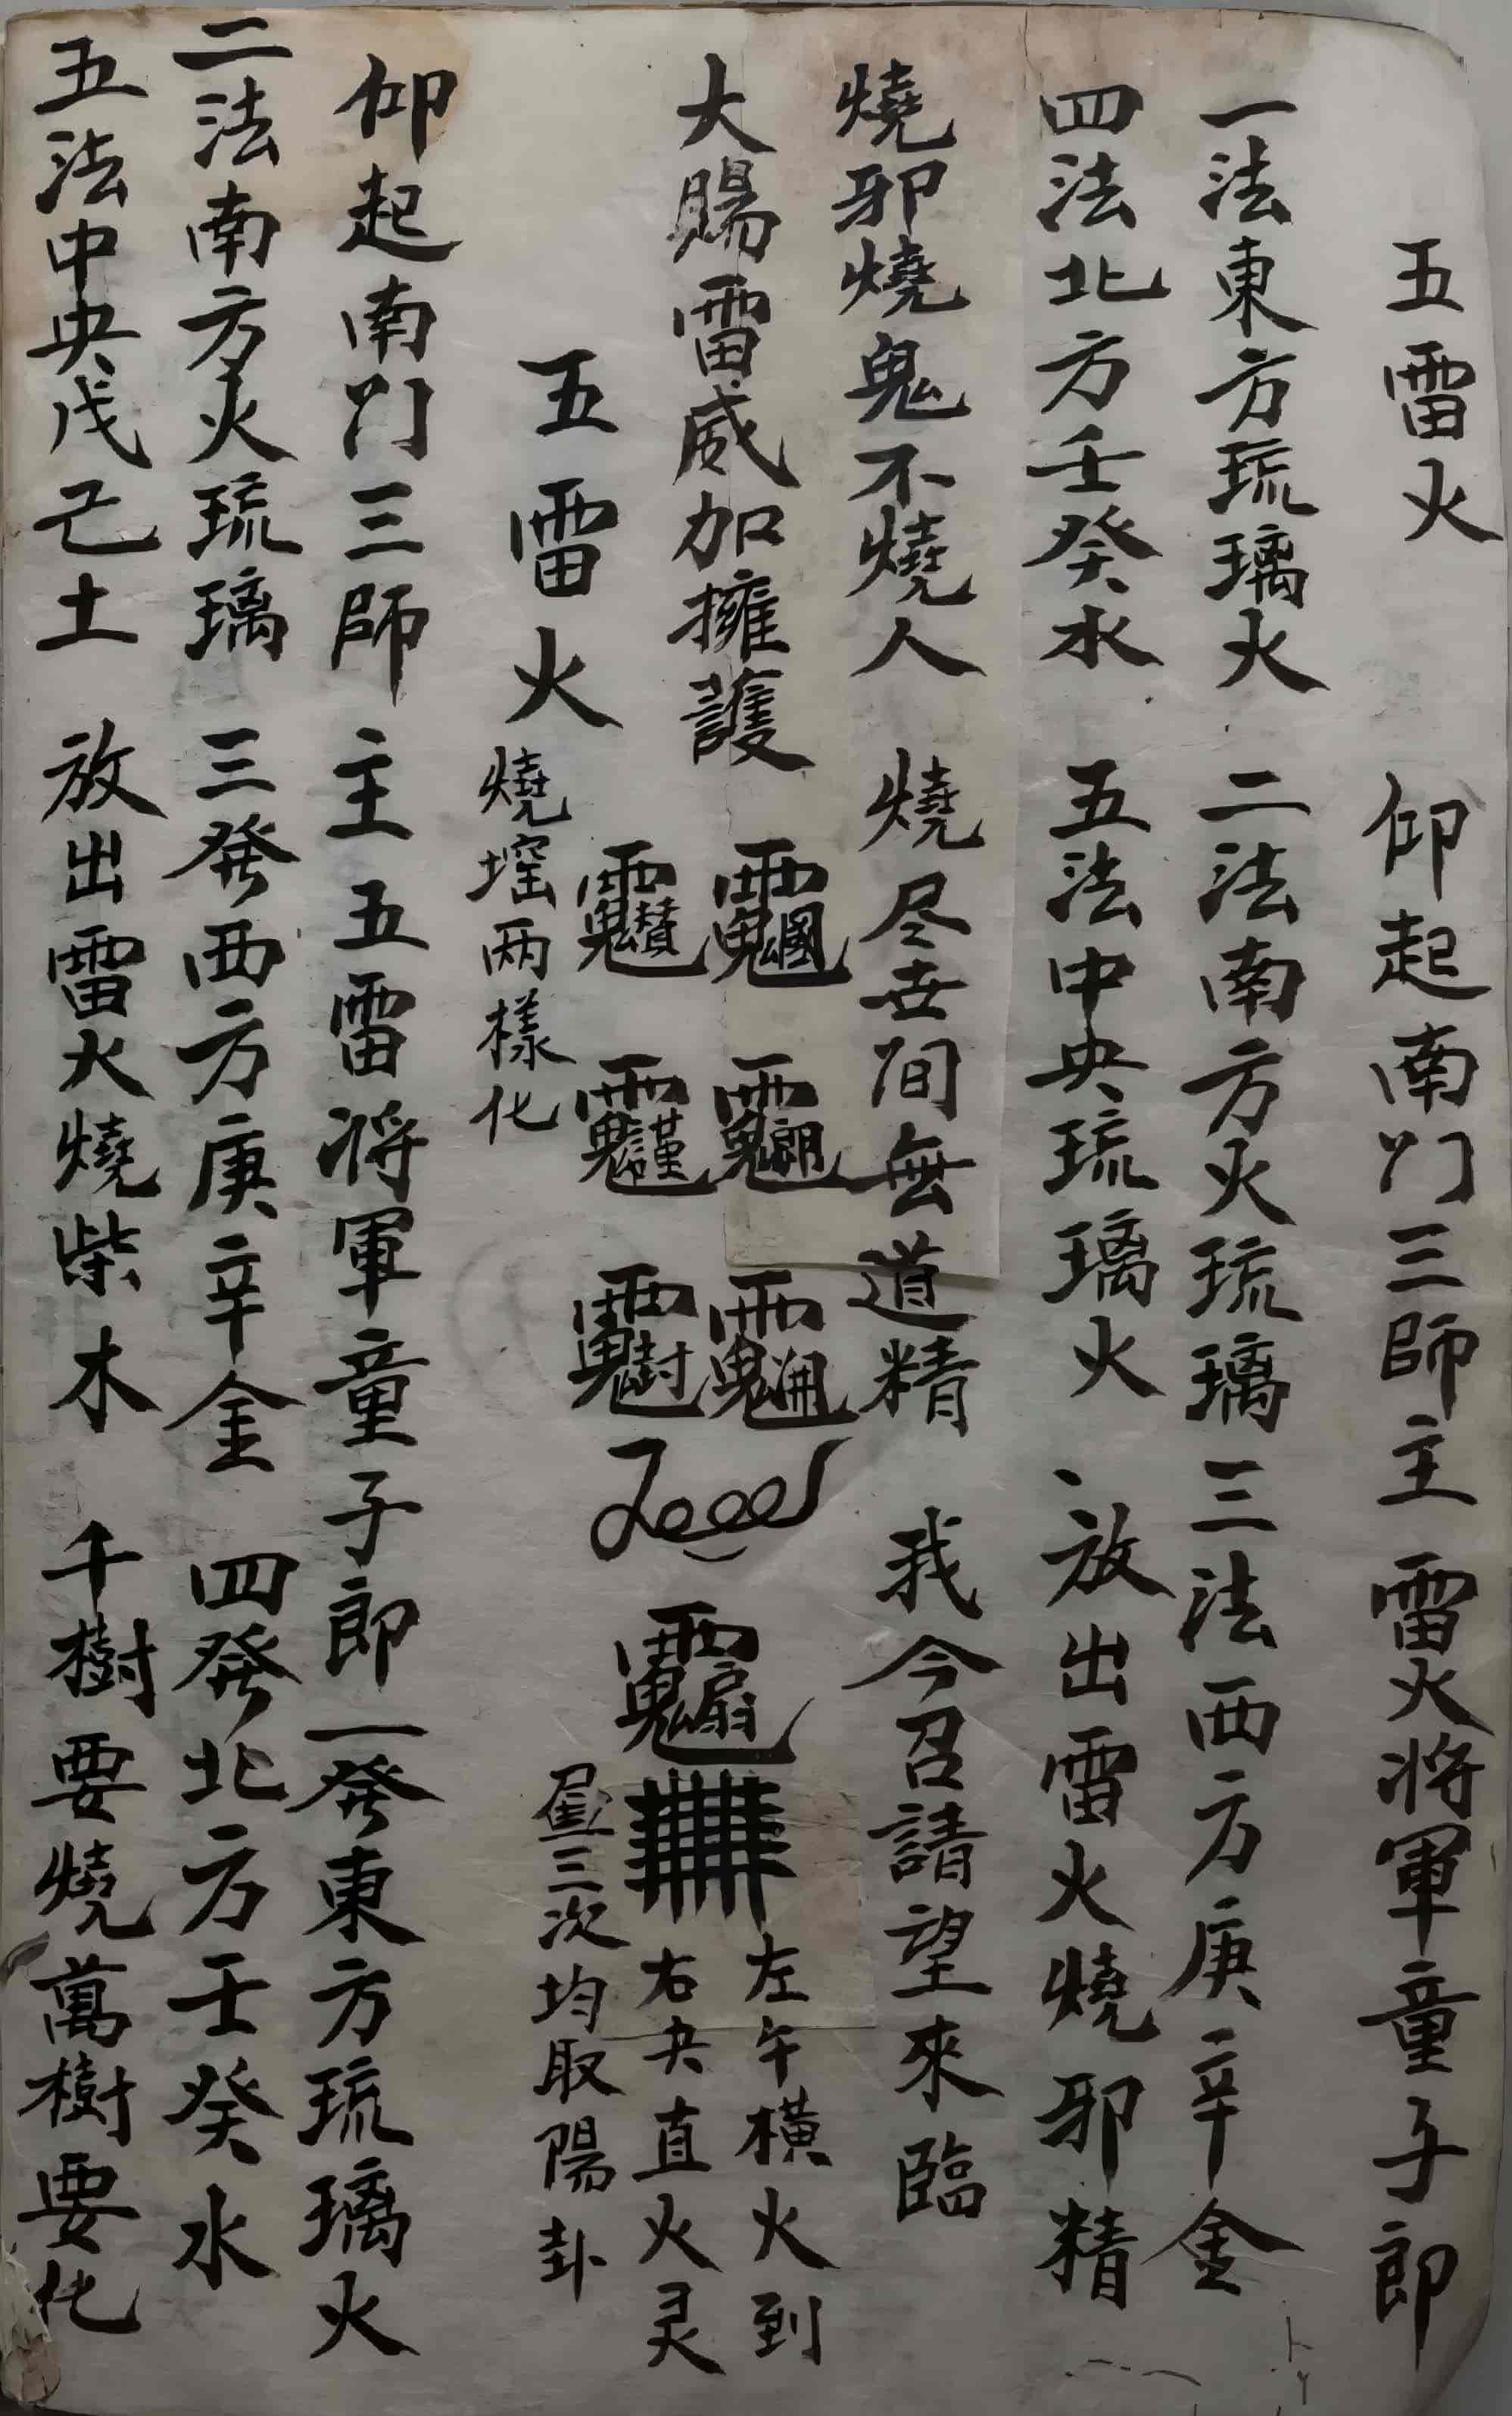 五雷火 仰起南门三師主 雷火将軍童子郎
一法東方琉璃火 二法南方火琉璃 三法西方庚辛金
四法北方壬癸水 五法中央琉璃火 放出雷火燒邪精
燒邪燒鬼不燒人 燒尽世间無道精 我今召請望來臨
大賜雷威加擁護
左午横火到
右夬直火灵
三次均取陽卦
五雷火 燒窑两樣化
仰起南门三師主 五雷将軍童子郎 一発東方琉璃火
二法南方火琉璃 三発西方庚辛金 四発北方壬癸水
五法中央戊己土 放出雷火燒柴木 千樹要燒萬樹要化